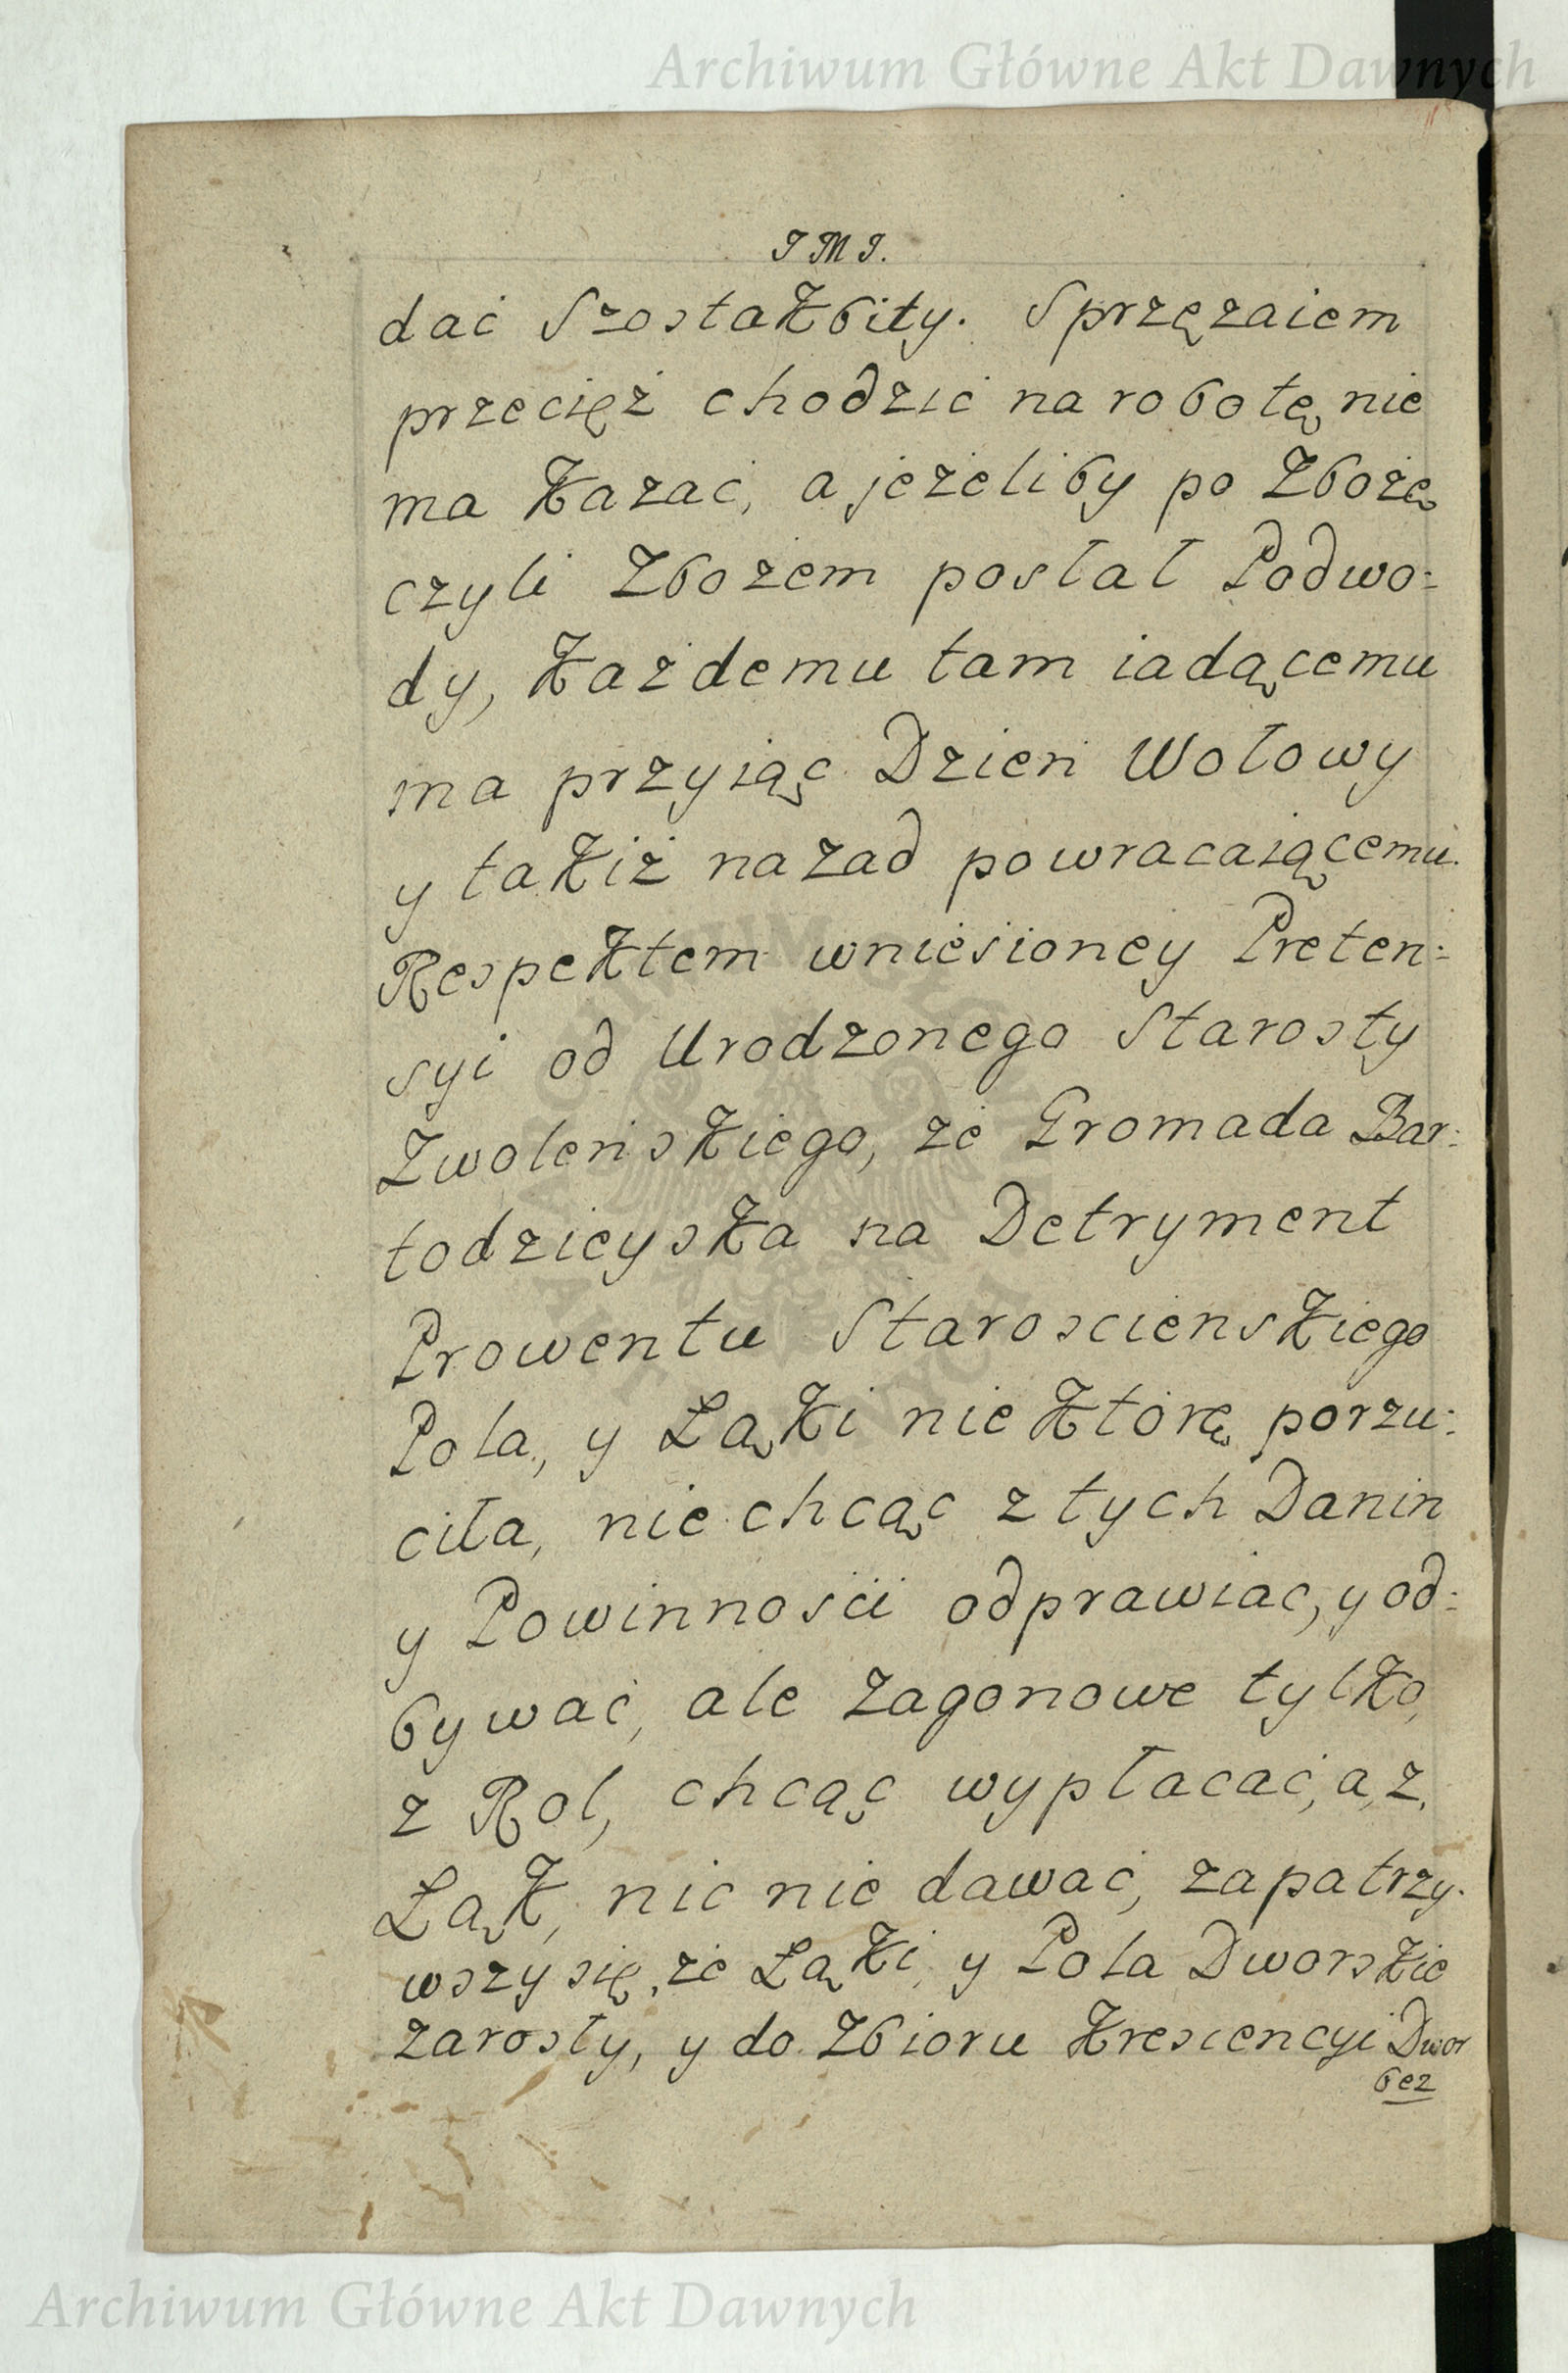 Archiwum Główne Akt Dawnych
J M J.
dać Szostak bity. Sprzężaiem
przecięż chodzić na robotę nie
ma kazać, a jeżeliby po Zbożę
czyli Zbożem posłał Podwo:
dy, każdemu tam iadącemu
ma przyiąć Dzień Wołowy
y takiż nazad powracaiącemu.
Respektem wniesioney Preten:
syi od Urodzonego Starosty
Zwoleńskiego, że Gromada Bar:
todzieyska na Detryment
Prowentu Starościenskiego
Pola, y Łąki nie którę porzu:
ciła, nie chcąc z tych Danin
y Powinnośći odprawiac, y od:
bywać, ale Zagonowe tylko,
z Rol, chcąc wypłacać, a, z,
Łąk, nic nie dawać, zapatrzy:
wszy się, że Łąki, y Pola Dworskie
zarosły, y do Zbioru Krescencyi Dwor
bez
Archiwum Główne Akt Dawnych